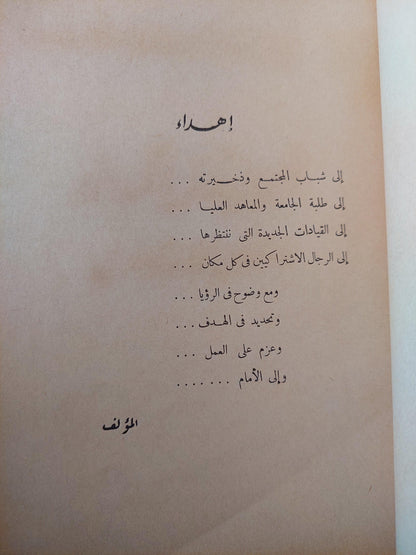 اهداء
إلى شباب المجتمع وذخيرته ...
إلى طلبة الجامعة والمعاهد العليا ...
إلى القيادات الجديدة التى ننتظرها ...
إلى الرجال الاشتراكيين فى كل مكان ...
ومع وضوح فى الرؤيا ...
وتحديد فى الهدف ...
وعزم على العمل ...
وإلى الأمام .......
المؤلف